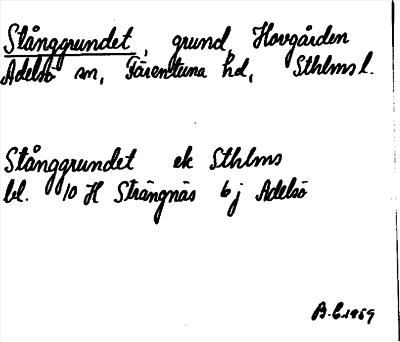 Stånggrundet, grund, Hovgården
Adelsö sn, Färentuna hd, Sthlms l.
Stånggrundet ek Sthlms
bl. 10 H Strängnäs 6 j Adelsö
B.C. 1959